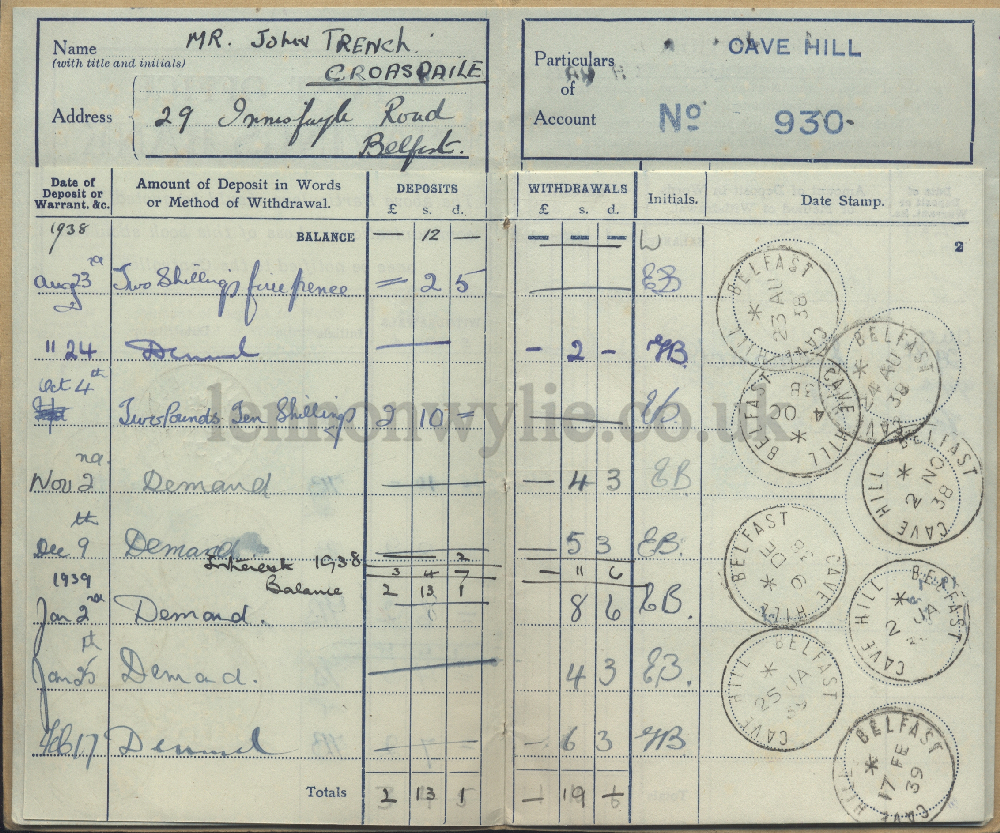 Name MR. JOHN TRENCH
(with title and initials) CROASDAILE
Address 29 Innisfayle Road
Belfast.
Particulars of Account CAVE HILL
No 930.
Date of Deposit or Warrant, &c. Amount of Deposit in Words or Method of Withdrawal. DEPOSITS £ s. d. WITHDRAWALS £ s. d. Initials. Date Stamp.
1938 BALANCE — 12 — — — — 2
Aug 23rd Two Shillings five pence = 2 5 EB
" 24 Demand — 2 - MB
Oct 4th Two Pounds Ten Shillings 2 10 =
Nov 2nd Demand — 4 3 EB
Dec 9th Demand — 5 3 EB
Interest 1938 2
3 4 7 - 11 6
1939 Balance 2 13 1
Jan 2nd Demand. 8 6 EB.
Jan 25th Demand. 4 3 EB.
Feb 17 Demand — 6 3 MB
Totals 2 13 1 — 19
BELFAST CAVE HILL 23 AU 38
BELFAST CAVE HILL 24 AU 38
BELFAST CAVE HILL 4 OC 38
BELFAST CAVE HILL 2 NO 38
BELFAST CAVE HILL 9 DE 38
BELFAST CAVE HILL 2 JA
BELFAST CAVE HILL 25 JA 39
BELFAST CAVE HILL 17 FE 39
lennonwylie.co.uk